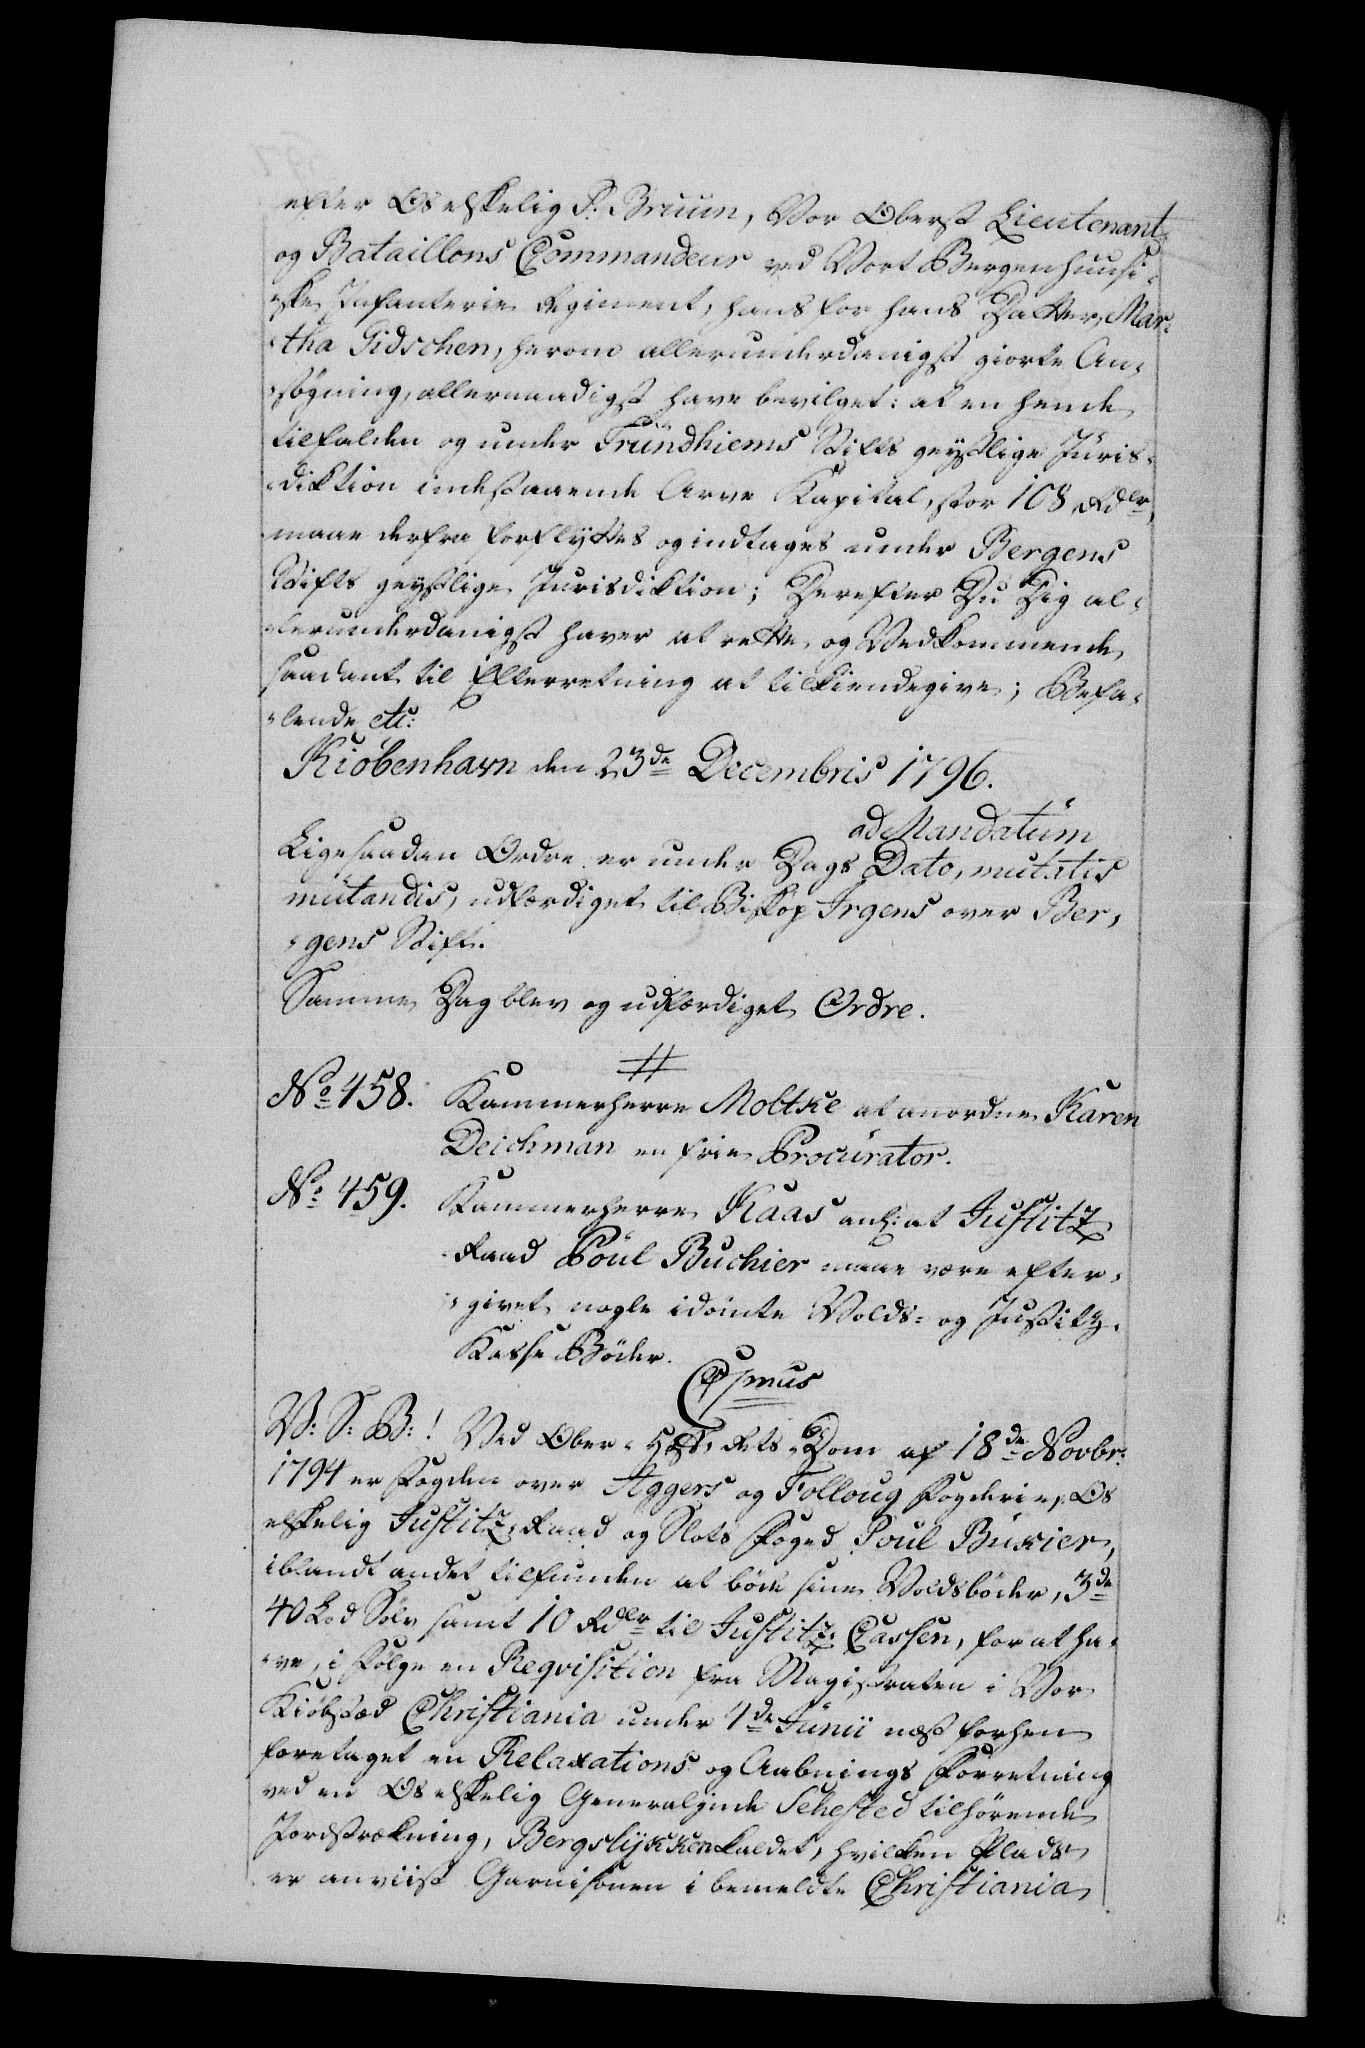 efter Os elskelig P: Bruun, Vor Oberst Lieutenant
og Bataillons Commandeur ved Vort Bergenhuusi-
ske Infanterie Regiment, hans for hans Datter, Mar-
tha Gidschen, herom allerunderdanigst giorte An-
søgning, allernaadigst have bevilget: at en hende
tilfalden og under Trundhiems Stifts geystlige Juris-
diktion indestaaende Arve Kapital, stor 108 Rdlr,
maae derfra forflyttes og indtages under Bergens
Stifts geystlige Jurisdiktion; Derefter Du Dig al-
lerunderdanigst haver at rette, og Vedkommende
saadant til Efterretning at tilkiendegive; Befa-
lende etc:
Kiøbenhavn den 23de Decembris 1796.
ad Mandatum
Ligesaadan Ordre er under Dags Dato, mutatis
mutandis, udfærdiget til Biskop Irgens over Ber-
gens Stift.
Samme Dag blev og udfærdiget Ordre.
No 458. Kammerherre Moltke at anordne Karen
Deichman en frie Procurator.
No 459. Kammerherre Kaas anl: at Justitz
Raad Poul Buchier maae være efter-
givet nogle idømte Volds- og Justitz-
Kasse Bøder.
V: S: B:! Ved Ober-Hof-Rets-Dom af 18de Novbr:
1794 er Fogden over Aggers og Folloug Fogderie, Os
elskelig Justitz-Raad og Slots Foged Poul Buxier,
iblandt andet tilfunden at bøde sine Voldsbøder, 3de
40 Lod Sølv samt 10 Rdlr til Justitz-Cassen, for at ha-
ve, i Følge en Reqvisition fra Magistraten i Vor
Kiøbstæd Christiania under 4de Junii næst forhen
foretaget en Relaxations og Aabnings Forretning
ved en Os elskelig Generalinde Sehested tilhørende
Jordstrækning, Bergslykken kaldet, hvilken Plads
er anviist Garnisonen i bemeldte Christiania